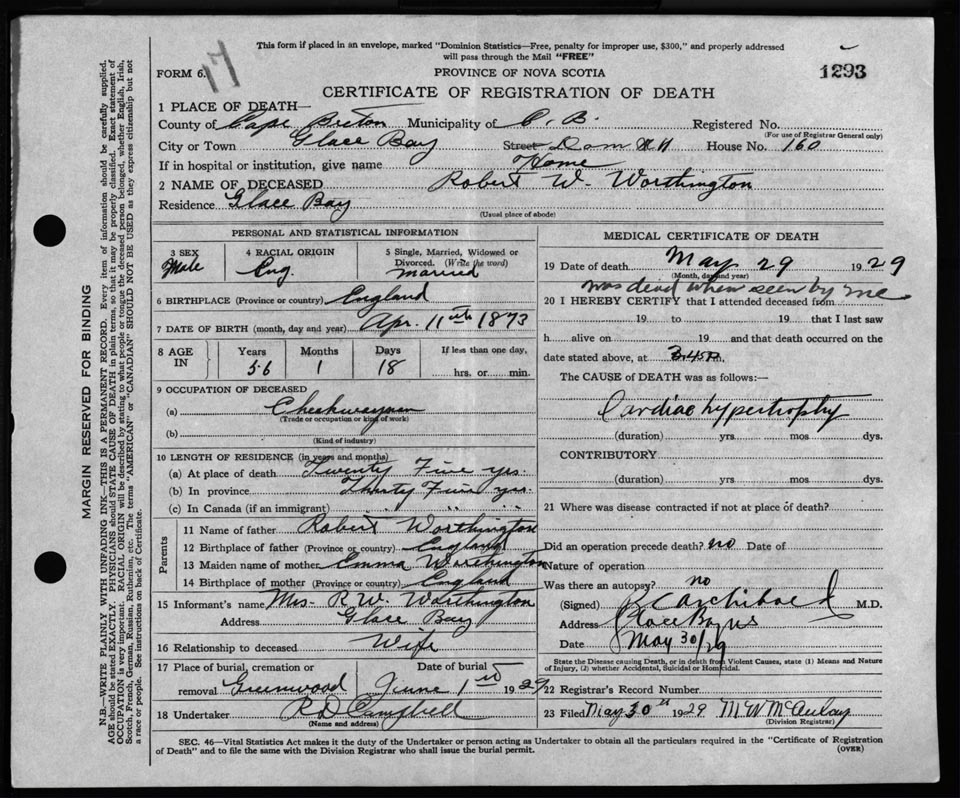 This form if placed in an envelope, marked "Dominion Statistics—Free, penalty for improper use, $300," and properly addressed
will pass through the Mail "FREE"
17
FORM 6.
PROVINCE OF NOVA SCOTIA
1293
CERTIFICATE OF REGISTRATION OF DEATH
1 PLACE OF DEATH—
County of Cape Breton Municipality of C. B. Registered No.
(For use of Registrar General only)
City or Town Glace Bay Street Dom No House No. 160
If in hospital or institution, give name Home
2 NAME OF DECEASED Robert W. Worthington
Residence Glace Bay
(Usual place of abode)
PERSONAL AND STATISTICAL INFORMATION
3 SEX
Male
4 RACIAL ORIGIN
Eng.
5 Single, Married, Widowed or
Divorced. (Write the word)
married
6 BIRTHPLACE (Province or country) England
7 DATE OF BIRTH (month, day and year) Apr. 11th 1873
8 AGE IN
Years Months Days If less than one day,
56 1 18 hrs. or min.
9 OCCUPATION OF DECEASED
(a)
(Trade or occupation or kind of work)
(b)
(Kind of industry)
10 LENGTH OF RESIDENCE (in years and months)
(a) At place of death Twenty Five yrs.
(b) In province Thirty Five yrs.
(c) In Canada (if an immigrant) " " "
Parents
11 Name of father Robert Worthington
12 Birthplace of father (Province or country) England
13 Maiden name of mother Emma Worthington
14 Birthplace of mother (Province or country) England
15 Informant's name Mrs. R. W. Worthington
Address Glace Bay
16 Relationship to deceased Wife
17 Place of burial, cremation or
removal Greenwood
Date of burial
June 1st 1929
18 Undertaker R D Campbell
(Name and address)
MEDICAL CERTIFICATE OF DEATH
19 Date of death May 29 1929
(Month, day and year)
was dead when seen by me
20 I HEREBY CERTIFY that I attended deceased from
19 to 19 that I last saw
h alive on 19 and that death occurred on the
date stated above, at 3.45 P. m.
The CAUSE of DEATH was as follows:—
Cardiac hypertrophy
(duration) yrs. mos dys.
CONTRIBUTORY
(duration) yrs. mos dys.
21 Where was disease contracted if not at place of death?
Did an operation precede death? no Date of
Nature of operation
Was there an autopsy? no
(Signed) Archibald M.D.
Address Glace Bay NS
Date May 30/29
State the Disease causing Death, or in death from Violent Causes, state (1) Means and Nature
of Injury, (2) whether Accidental, Suicidal or Homicidal.
22 Registrar's Record Number
23 Filed May 30th 1929 M W McAulay
(Division Registrar)
SEC. 46—Vital Statistics Act makes it the duty of the Undertaker or person acting as Undertaker to obtain all the particulars required in the "Certificate of Registration
of Death" and to file the same with the Division Registrar who shall issue the burial permit.
(OVER)
MARGIN RESERVED FOR BINDING
N.B.—WRITE PLAINLY WITH UNFADING INK—THIS IS A PERMANENT RECORD. Every item of information should be carefully supplied.
AGE should be stated EXACTLY. PHYSICIANS should STATE CAUSE OF DEATH in plain terms, so that it may be properly classified. Exact statement of
OCCUPATION is very important. RACIAL ORIGIN will be described by stating to what people or tongue the deceased person belonged, whether English, Irish,
Scotch, French, German, Russian, Ruthenian, etc. The terms "AMERICAN" or "CANADIAN" SHOULD NOT BE USED as they express citizenship but not
a race or people. See instructions on back of Certificate.